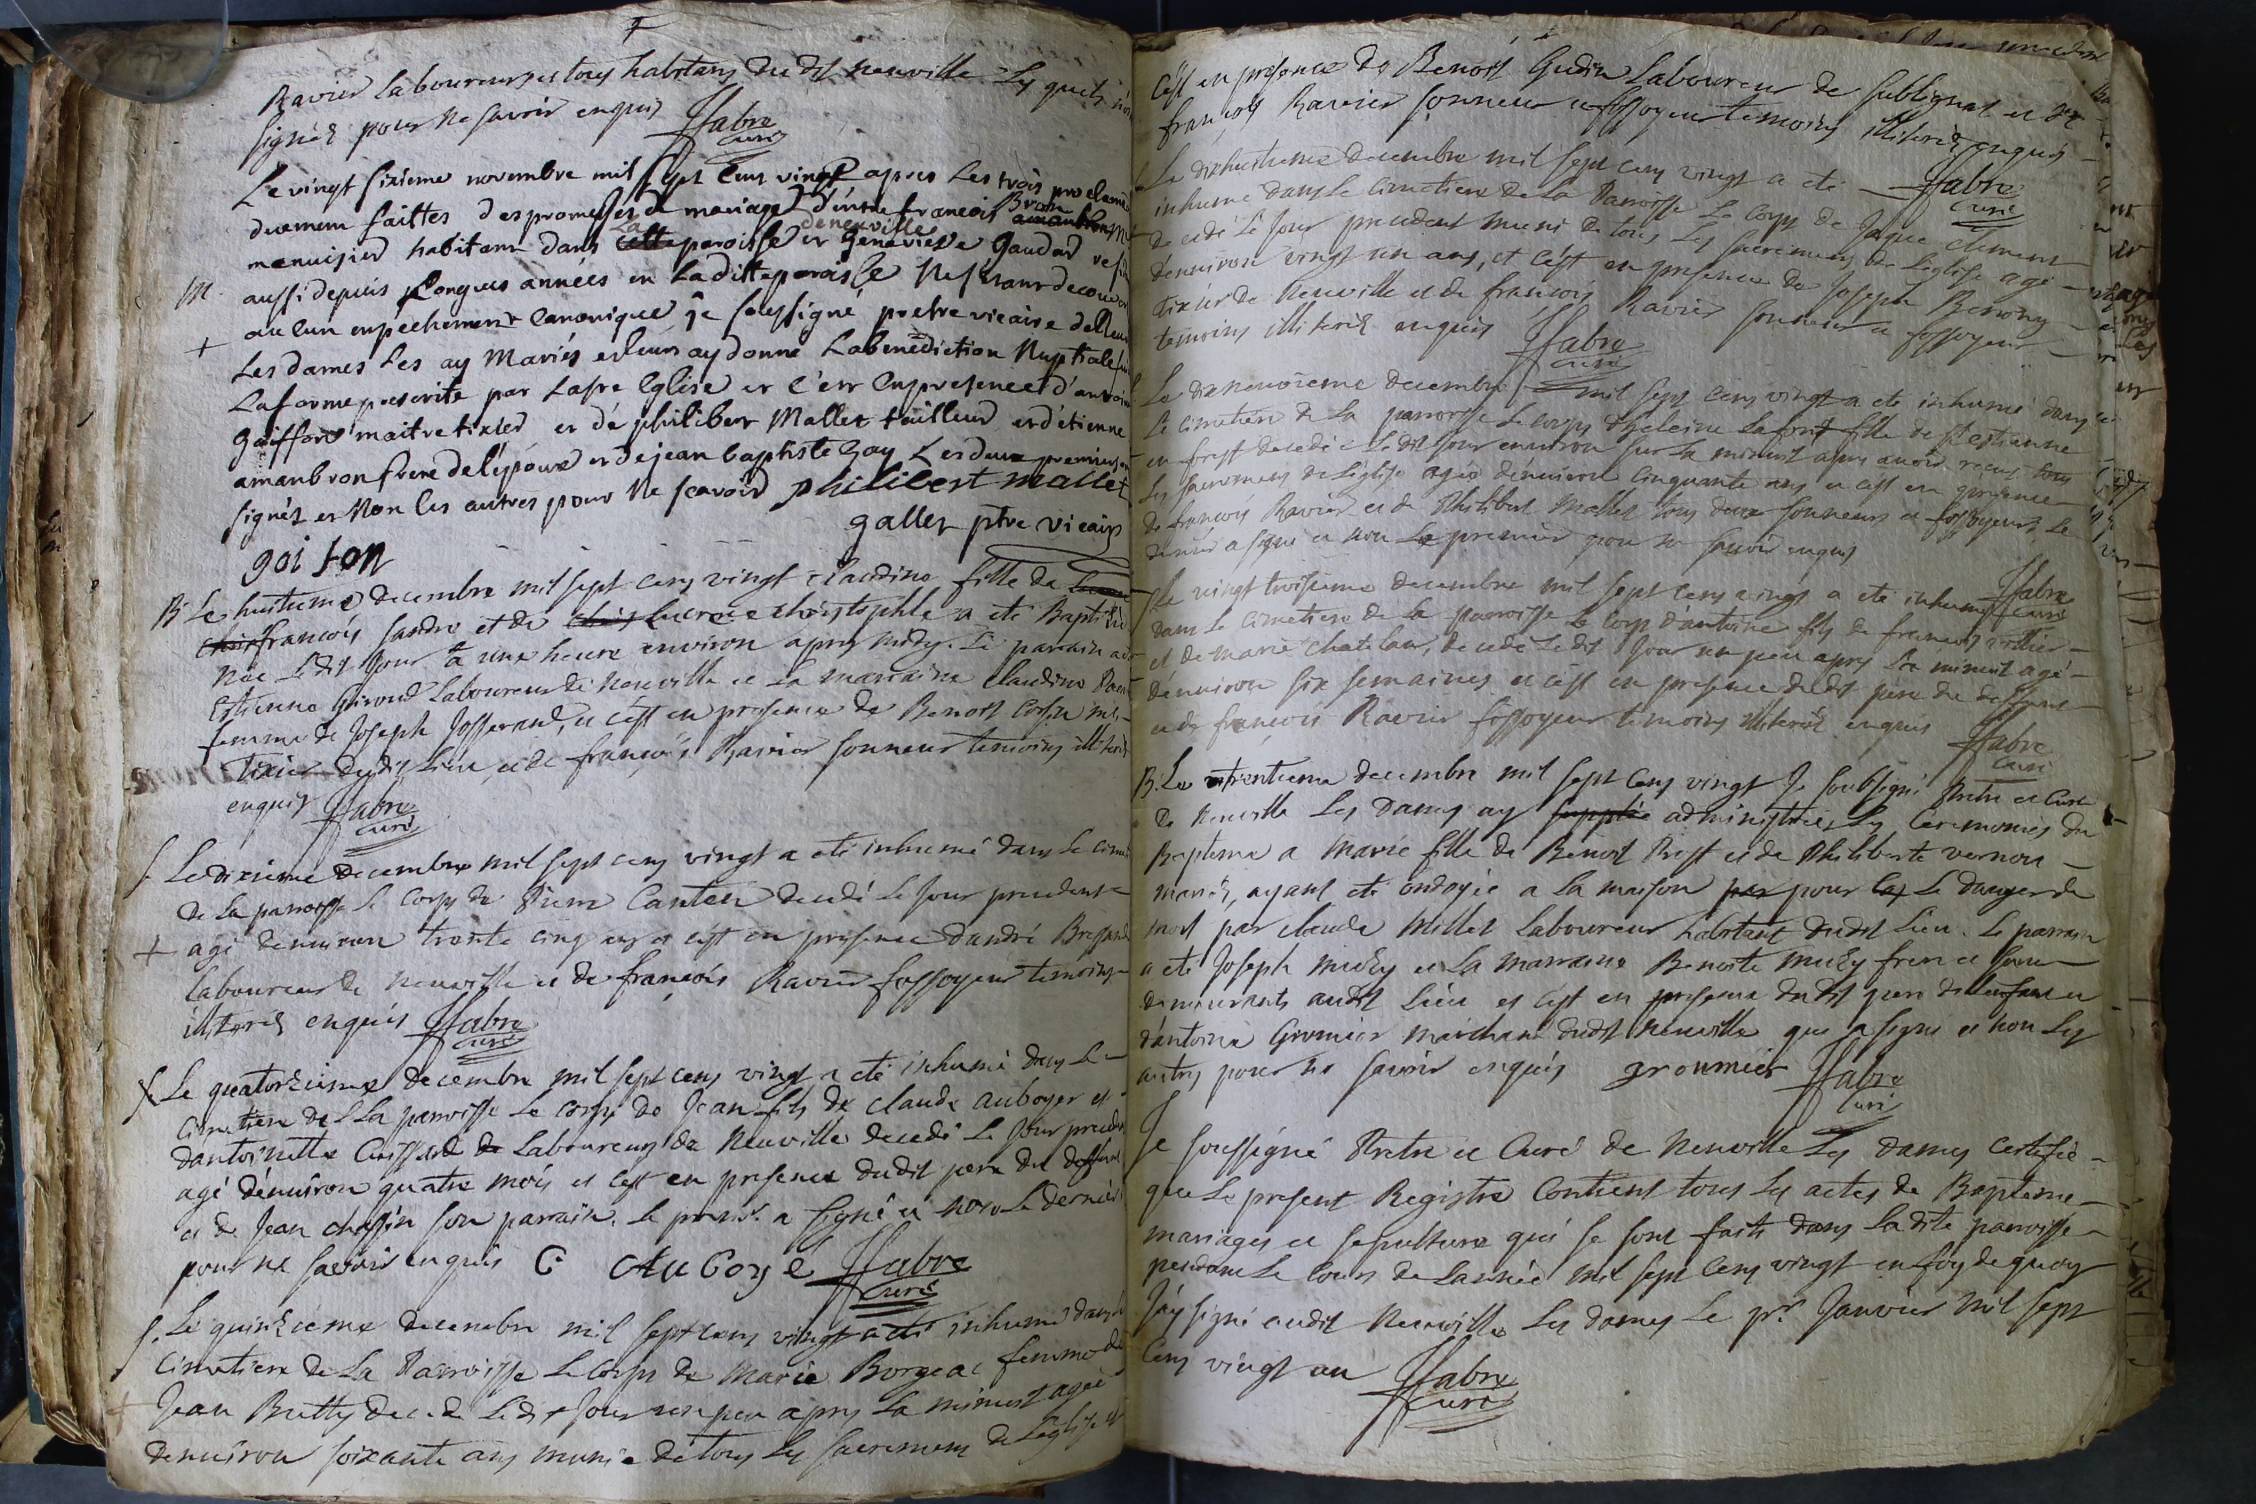 Ravier Laboureurs et tous habitans du dit neuville Les quels n'on
signéz pour ne savoir enquis ffabre
curé
Le vingt sixieme novembre mil sept cens vingt apres Les trois proclama
deuement faittes des promesses de mariage d'entre francois amanbron
menuisier habitant dans La paroisse de neuville et Genevieve Gaudar
M aussi depuis Longues années en Laditte paroisse
aucun enpechement canonique je soussigné prêtre vicaire de Neu
+ Les dames Les ay Mariés et leurs ay donné La benediction Nuptiale
La forme prescrite par La Ste Eglise et c'est en presence d'antoin
Goiffon maitre tixier et dé philibert Mallet tailleur et d'étienne
amanbron frere de l'epoux et de jean baptiste Gay Les deux premiers
signéz et Non les autres pour Ne scavoir philibert mallet
gallet ptre vicaire
goifon
B Le huitieme decembre mil sept cens vingt claudine fille de
francois sandre et de Lucrece christophle a eté Baptisée
Née Le dit Jour a une heure environ apres midy. Le parrain a
estienne Giroud Laboureur de Neuville et La marraine Claudine
femme de Joseph Josserand, et c'est en presence de Benoit
tixier dudit Lieu et de françois Ravier sonneur temoins illiteré
enquis ffabre
curé
s. Le dixieme decembre mil sept cens vingt a eté inhumé dans Le cime
de La parroisse Le corps de Pierre Canton decedé Le Jour precedent
+ agé denviron trente cinq ans et c'est en presence d'andré
Laboureur de Neuville et de françois Ravier fossoyeur temoins
illiteréz enquis ffabre
curé
s Le quatorzieme decembre mil sept cens vingt a eté inhumé dans Le
Cimetiere de La parroisse Le corps de Jean fils de claude auboyer et
dantoinette Laboureurs de Neuville decedé Le Jour preceden
agé dénviron quatre mois et c'est en presence dudit pere du deffunt
et de Jean chaffin son parrain. Le premier a signé et non Le dernier
pour ne savoir enquis C. AuBoyé ffabre
curé
s. Le quinzieme decembre mil sept cens vingt a eté inhumé dans Le
Cimetiere de La Parroisse Le corps de Marie Borgeac femme de
Jean Butty decedé Le dit Jour un peu apres La minuit agée
denviron soixante ans munie de tous Les sacremens de Leglise et
c'est en presence de Benoit Gudin Laboureur de sublignat et de
françois Ravier sonneur et fossoyeur temoins illiteréz enquis
ffabre
curé
Le dixhuitieme decembre mil sept cens vingt a eté
inhumé dans Le cimetiere de La Parroisse Le corps de Jaque clement
decedé Le jour precedent muni de tous Les sacremens de Leglise agé
dénviron vingt un ans, et c'est en presence de Joseph
tixier de Neuville et de françois Ravier sonneur et fossoyeur
temoins illiteréz enquis ffabre
curé
Le dixneuvieme decembre mil sept cens vingt a eté inhumé dans
Le cimetiere de La parroisse Le corps d'heleine Lafont fille de St estienne
en forest decedée Le dit Jour environ sur La minuit apres avoir receu tous
Les sacremens de Léglise agée dénviron cinquante ans et c'est en presence
de françois Ravier et de Philibert Mallet tous deux sonneurs et fossoyeurs, Le
dernier a signé et non Le premier pour ne savoir enquis
ffabre
curé
s Le vingt troisieme decembre mil sept cens vingt a eté inhumé
dans Le cimetiere de La parroisse Le corps d'antoine fils de françois
et de marie chatelan, decedé Le dit Jour un peu apres La minuit agé
dénviron six semaines et c'est en presence dudit pere du deffunt
et de françois Ravier fossoyeur temoins illiteréz enquis
ffabre
curé
B. Le trentieme decembre mil sept cens vingt Je soubsigné Pretre et Curé
de Neuville Les Dames ay supplée administrées Les Ceremonies du
Baptême a Marie fille de Benoit Prost et de Philiberte vernon
mariéz, ayant eté ondoyée a La maison pour Le danger de
mort par claude Millet Laboureur habitant dudit Lieu. Le parrain
a eté Joseph muzy et La marraine Benoite muzy frere et soeur
demeurants audit Lieu et c'est en presence dudit pere de Lenfant et
d'antoine Gromier marchand dudit neuville que a signé et non Les
autres pour ne savoir enquis groumier ffabre
curé
Je soussigné Pretre et Curé de Neuville Les dames certifie
que Le present Registre Contient tous Les actes de Bapteme
mariages et sepulture qui se sont faits dans La dite parroisse
pendant Le cours de Lannée mil sept cens vingt en foy de quoy
J'ay signé audit Neuville Les dames Le pr. Janvier mil sept
cens vingt un ffabre
curé